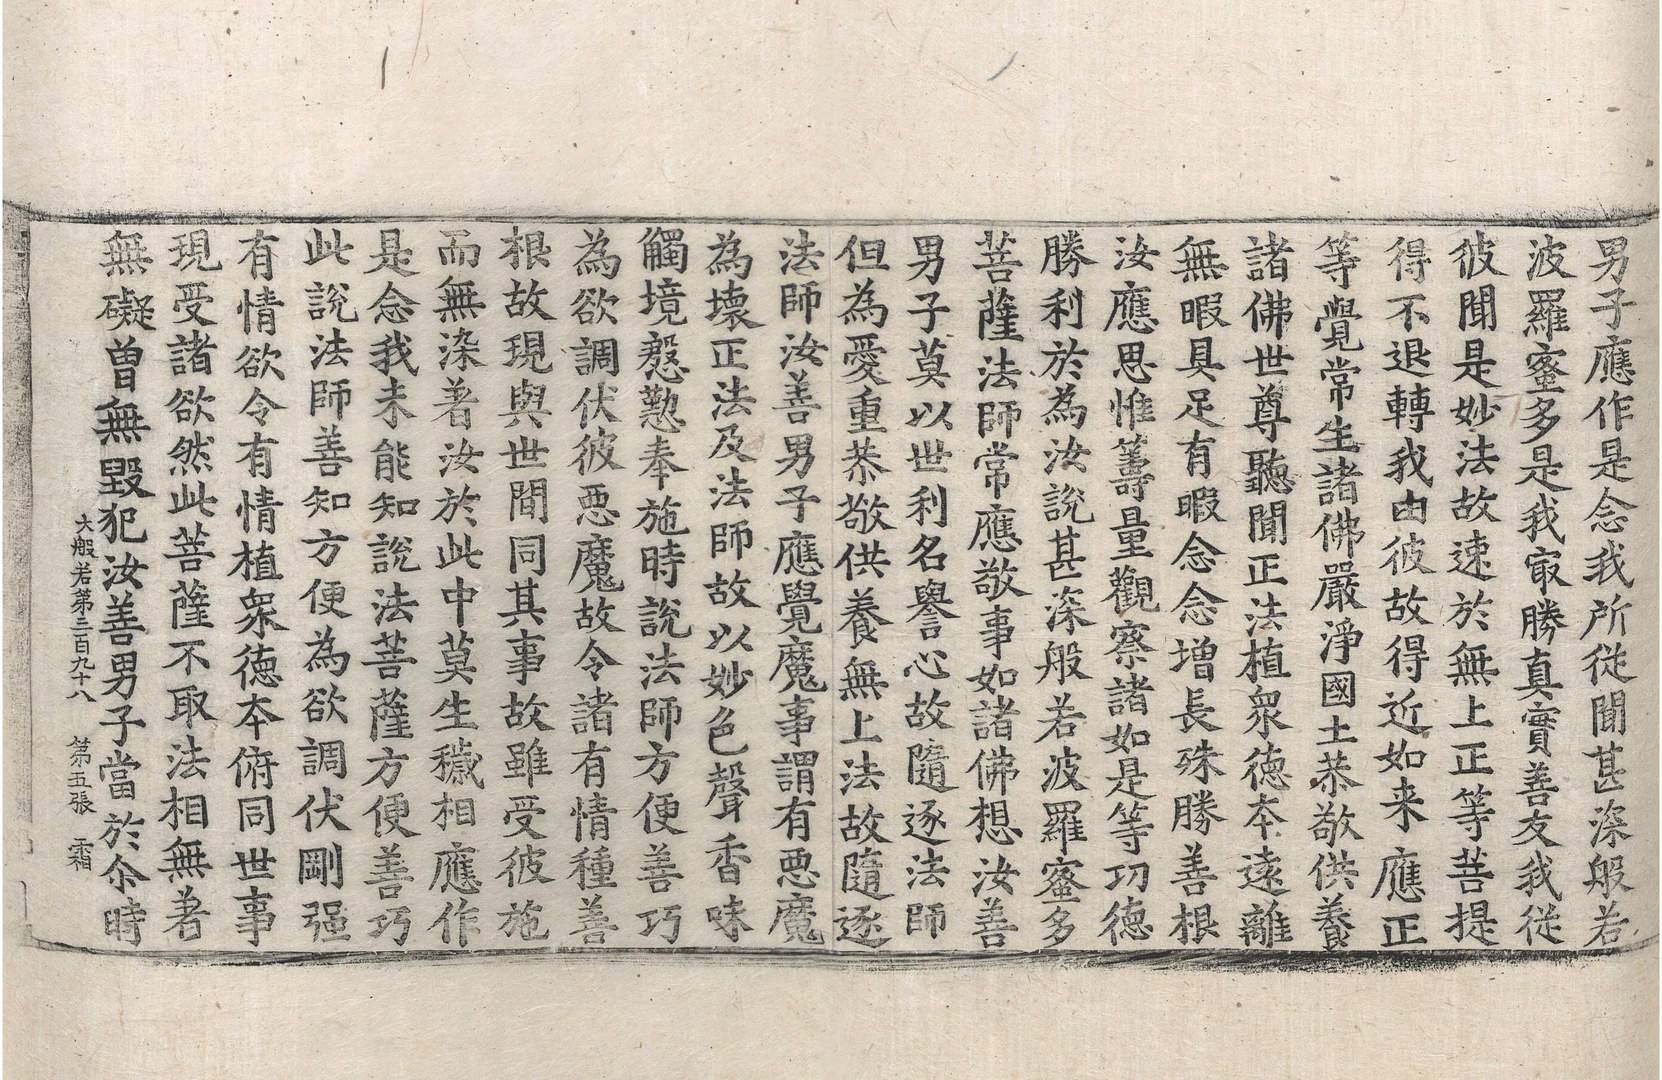 男子應作是念我所從聞甚深般若
波羅蜜多是我㝡勝真實善友我從
彼聞是妙法故速於無上正等菩提
得不退轉我由彼故得近如来應正
等覺常生諸佛嚴淨國土恭敬供養
諸佛世尊聽聞正法植衆德本遠離
無暇具足有暇念念增長殊勝善根
汝應思惟籌量觀察諸如是等功德
勝利於為汝說甚深般若波羅蜜多
菩薩法師常應敬事如諸佛想汝善
男子莫以世利名譽心故隨逐法師
但為愛重恭敬供養無上法故隨逐
法師汝善男子應覺魔事謂有惡魔
為壞正法及法師故以妙色聲香味
觸境慇懃奉施時說法師方便善巧
為欲調伏彼惡魔故令諸有情種善
根故現與世間同其事故雖受彼施
而無染著汝於此中莫生穢相應作
是念我未能知說法菩薩方便善巧
此說法師善知方便為欲調伏剛强
有情欲令有情植衆德本俯同世事
現受諸欲然此菩薩不取法相無著
無礙曾無毀犯汝善男子當於尒時
大般若第三百九十八 第五張 霜